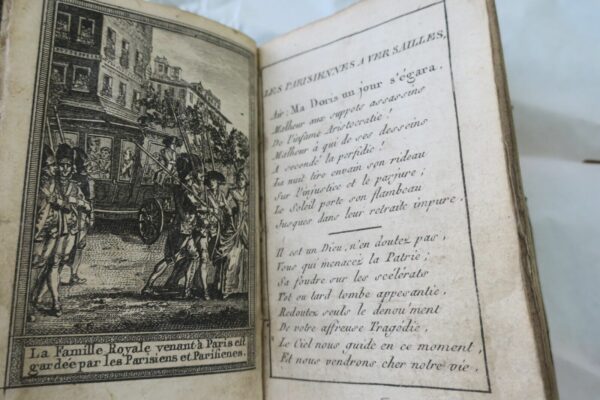 La Famille Royale venant à Paris est
gardée par les Parisiens et Parisienes.
LES PARISIENNES A VERSAILLES,
Air: Ma Doris un jour s'égara,
Malheur aux suppots assassins
De l'infâme Aristocratie!
Malheur à qui de ses desseins
A secondé la perfidie!
La nuit tire envain son rideau
Sur l'injustice et le parjure;
Le Soleil porte son flambeau
Jusques dans leur retraite impure.
Il est un Dieu, n'en doutez pas,
Vous qui menacez la Patrie;
Sa foudre sur les scélérats
Tot ou tard tombe appesantie,
Redoutez seuls le dénoument
De votre affreuse Tragédie,
Le Ciel nous guide en ce moment,
Et nous vendrons cher notre vie.